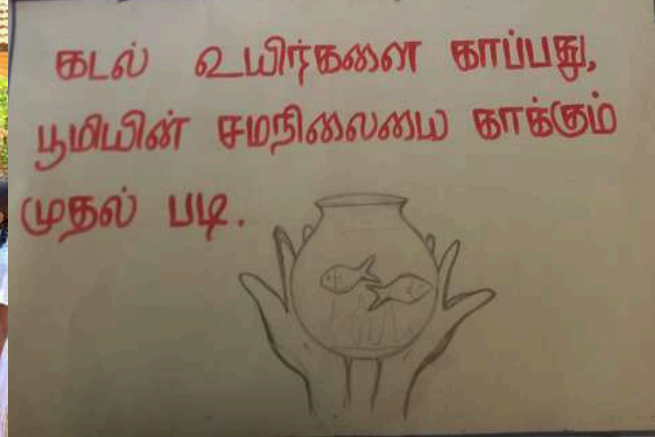 கடல் உயிர்களை காப்பது,
பூமியின் சமநிலையை காக்கும்
முதல் படி.